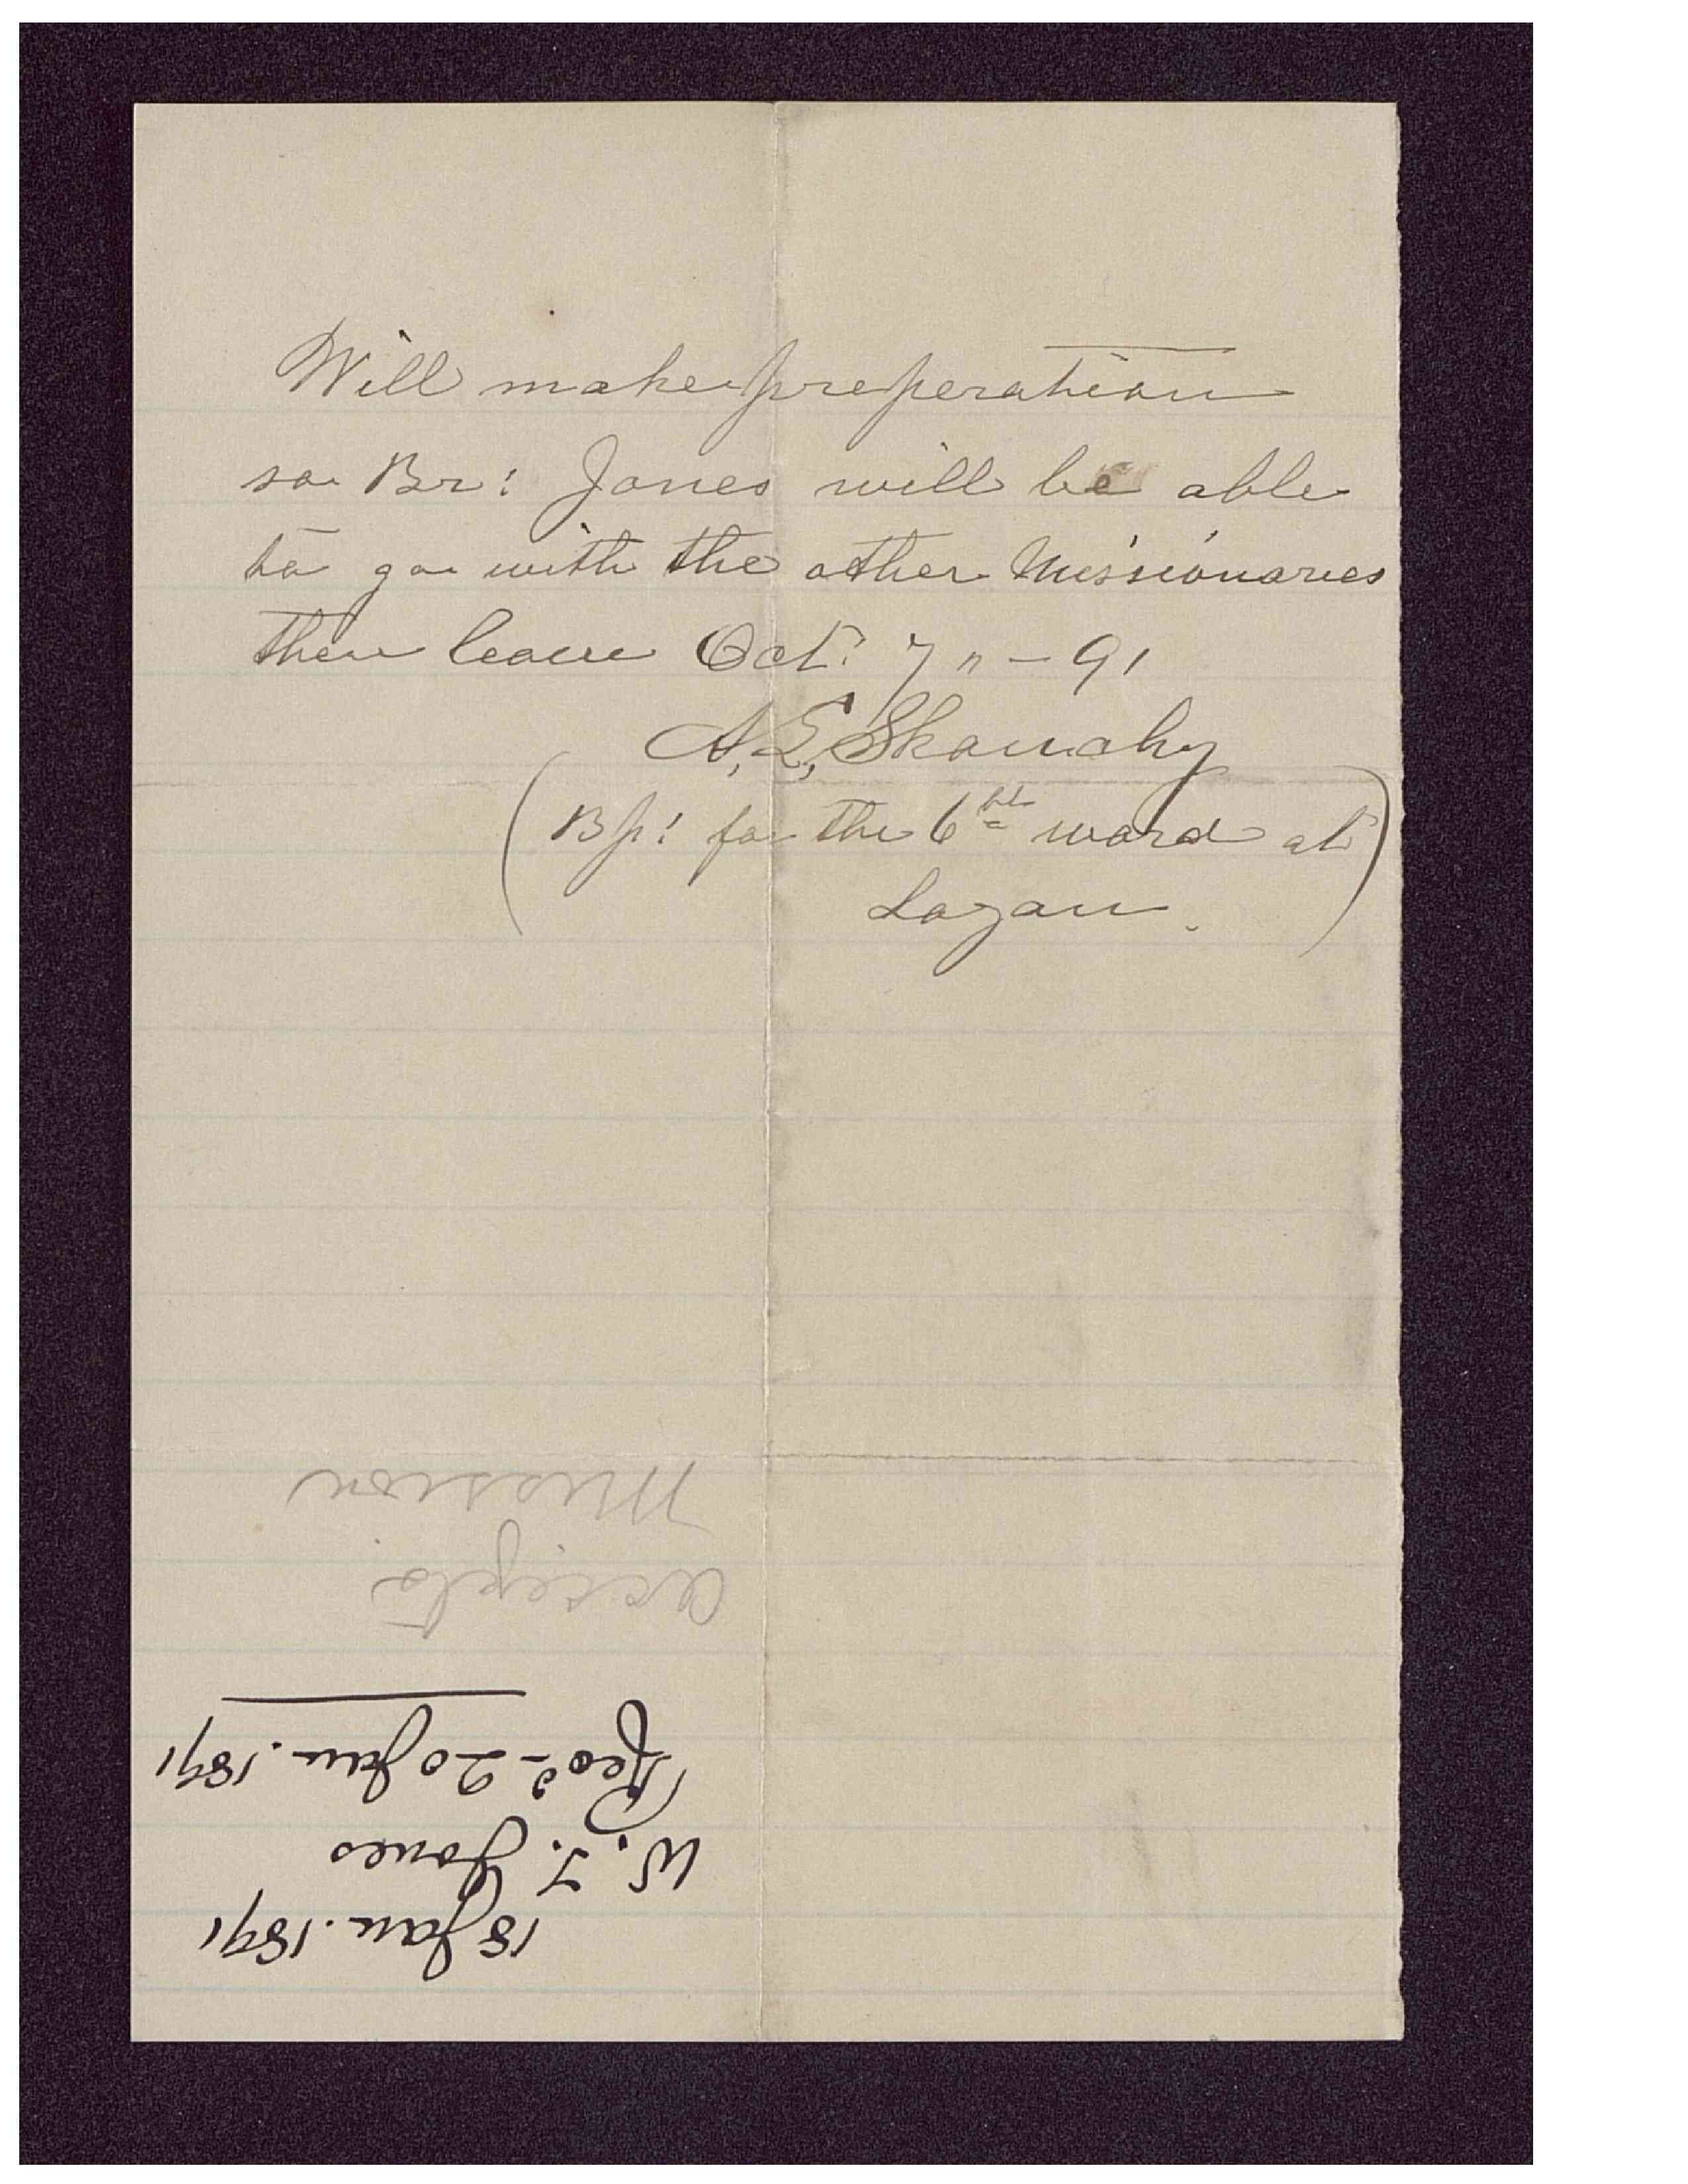 Will make preperation
so Br: Jones will be able
to go with the other Missionaries
then leave Oct: 7" - 91
A, E, Skanchy
(Bp: for the 6th ward at
Logan.)
18 Jan. 1891
W. T. Jones
Recd 20 Jan. 1891
Accepts
Mission